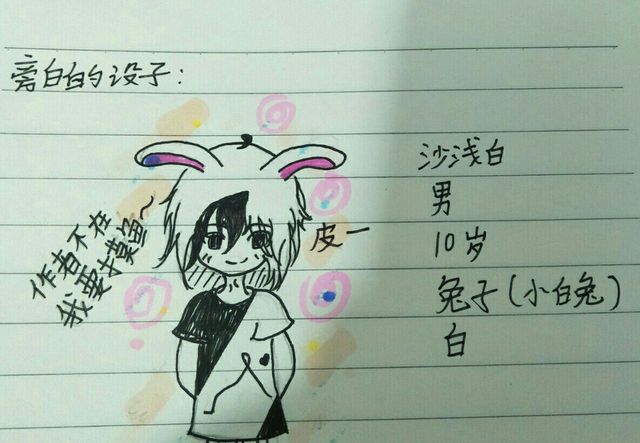 旁白的设子：
沙浅白
男
10岁
兔子（小白兔）
白
作者不在
我要摸鱼~
皮一